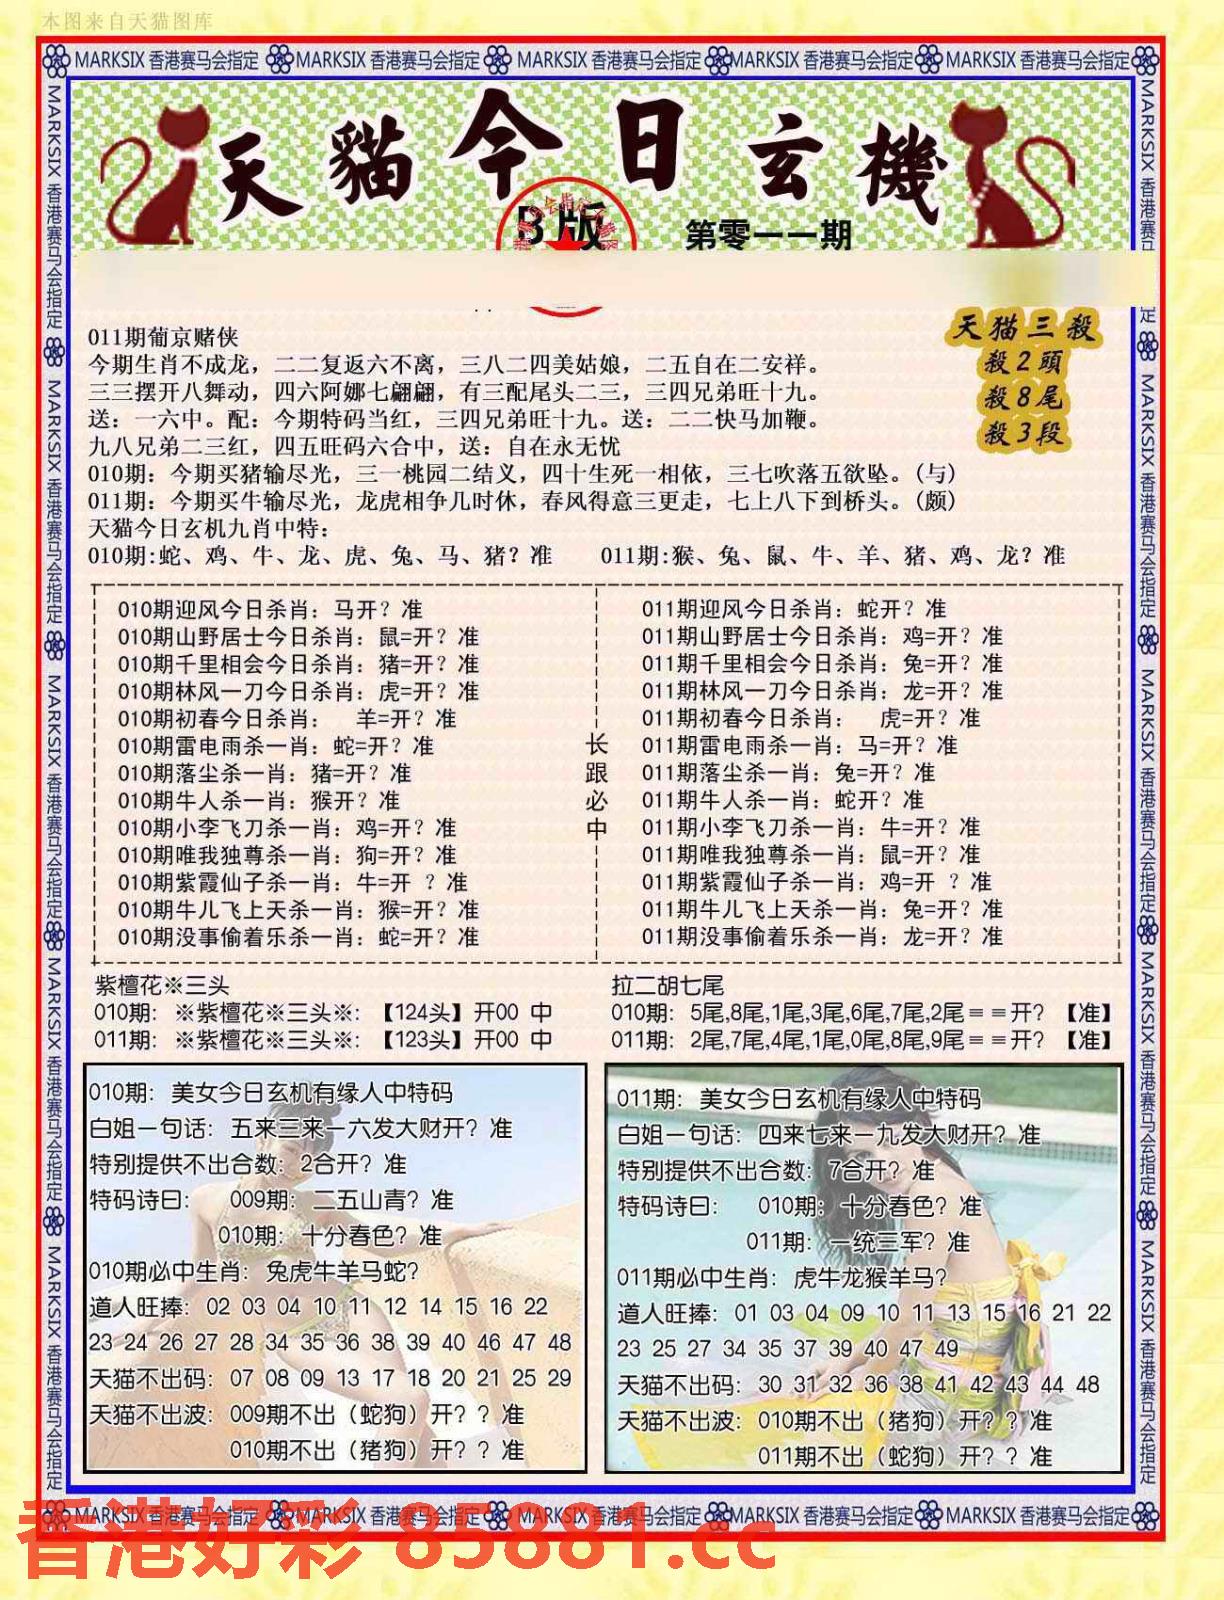 本图来自天猫图库
MARKSIX 香港赛马会指定 MARKSIX 香港赛马会指定 MARKSIX 香港赛马会指定 MARKSIX 香港赛马会指定 MARKSIX 香港赛马会指定
天貓今日玄機
B版
第零一一期
天猫三殺
殺2頭
殺8尾
殺3段
011期葡京赌侠
今期生肖不成龙，二二复返六不离，三八二四美姑娘，二五自在二安祥。
三三摆开八舞动，四六阿娜七翩翩，有三配尾头二三，三四兄弟旺十九。
送：一六中。配：今期特码当红，三四兄弟旺十九。送：二二快马加鞭。
九八兄弟二三红，四五旺码六合中，送：自在永无忧
010期：今期买猪输尽光，三一桃园二结义，四十生死一相依，三七吹落五欲坠。（与）
011期：今期买牛输尽光，龙虎相争几时休，春风得意三更走，七上八下到桥头。（颇）
天猫今日玄机九肖中特：
010期:蛇、鸡、牛、龙、虎、兔、马、猪？准 011期:猴、兔、鼠、牛、羊、猪、鸡、龙？准
010期迎风今日杀肖：马开？准
010期山野居士今日杀肖：鼠=开？准
010期千里相会今日杀肖：猪=开？准
010期林风一刀今日杀肖：虎=开？准
010期初春今日杀肖： 羊=开？准
010期雷电雨杀一肖：蛇=开？准
010期落尘杀一肖：猪=开？准
010期牛人杀一肖：猴开？准
010期小李飞刀杀一肖：鸡=开？准
010期唯我独尊杀一肖：狗=开？准
010期紫霞仙子杀一肖：牛=开 ？准
010期牛儿飞上天杀一肖：猴=开？准
010期没事偷着乐杀一肖：蛇=开？准
长跟必中
011期迎风今日杀肖：蛇开？准
011期山野居士今日杀肖：鸡=开？准
011期千里相会今日杀肖：兔=开？准
011期林风一刀今日杀肖：龙=开？准
011期初春今日杀肖： 虎=开？准
011期雷电雨杀一肖：马=开？准
011期落尘杀一肖：兔=开？准
011期牛人杀一肖：蛇开？准
011期小李飞刀杀一肖：牛=开？准
011期唯我独尊杀一肖：鼠=开？准
011期紫霞仙子杀一肖：鸡=开 ？准
011期牛儿飞上天杀一肖：兔=开？准
011期没事偷着乐杀一肖：龙=开？准
紫檀花※三头
010期：※紫檀花※三头※：【124头】开00 中
011期：※紫檀花※三头※：【123头】开00 中
拉二胡七尾
010期：5尾,8尾,1尾,3尾,6尾,7尾,2尾＝＝开？【准】
011期：2尾,7尾,4尾,1尾,0尾,8尾,9尾＝＝开？【准】
010期：美女今日玄机有缘人中特码
白姐一句话：五来三来一六发大财开？准
特别提供不出合数：2合开？准
特码诗曰： 009期：二五山青？准
010期：十分春色？准
010期必中生肖：兔虎牛羊马蛇？
道人旺捧：02 03 04 10 11 12 14 15 16 22
23 24 26 27 28 34 35 36 38 39 40 46 47 48
天猫不出码：07 08 09 13 17 18 20 21 25 29
天猫不出波：009期不出（蛇狗）开？？准
010期不出（猪狗）开？？准
011期：美女今日玄机有缘人中特码
白姐一句话：四来七来一九发大财开？准
特别提供不出合数：7合开？准
特码诗曰： 010期：十分春色？准
011期：一统三军？准
011期必中生肖：虎牛龙猴羊马？
道人旺捧：01 03 04 09 10 11 13 15 16 21 22
23 25 27 34 35 37 39 40 47 49
天猫不出码：30 31 32 36 38 41 42 43 44 48
天猫不出波：010期不出（猪狗）开？？准
011期不出（蛇狗）开？？准
MARKSIX 香港赛马会指定 MARKSIX 香港赛马会指定 MARKSIX 香港赛马会指定 MARKSIX 香港赛马会指定 MARKSIX 香港赛马会指定
MARKSIX 香港赛马会指定 MARKSIX 香港赛马会指定 MARKSIX 香港赛马会指定 MARKSIX 香港赛马会指定 MARKSIX 香港赛马会指定
香港好彩 85881.cc